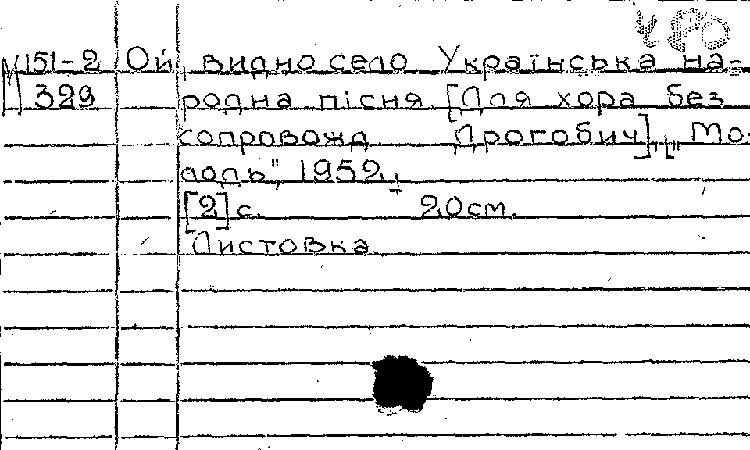 УРО
М151-2 Ой, видно село Українська на-
329 родна пісня [Для хора без
сопровожд Дрогобич], „Мо-
лодь", 1952.
[2]с. 20см.
Листовка